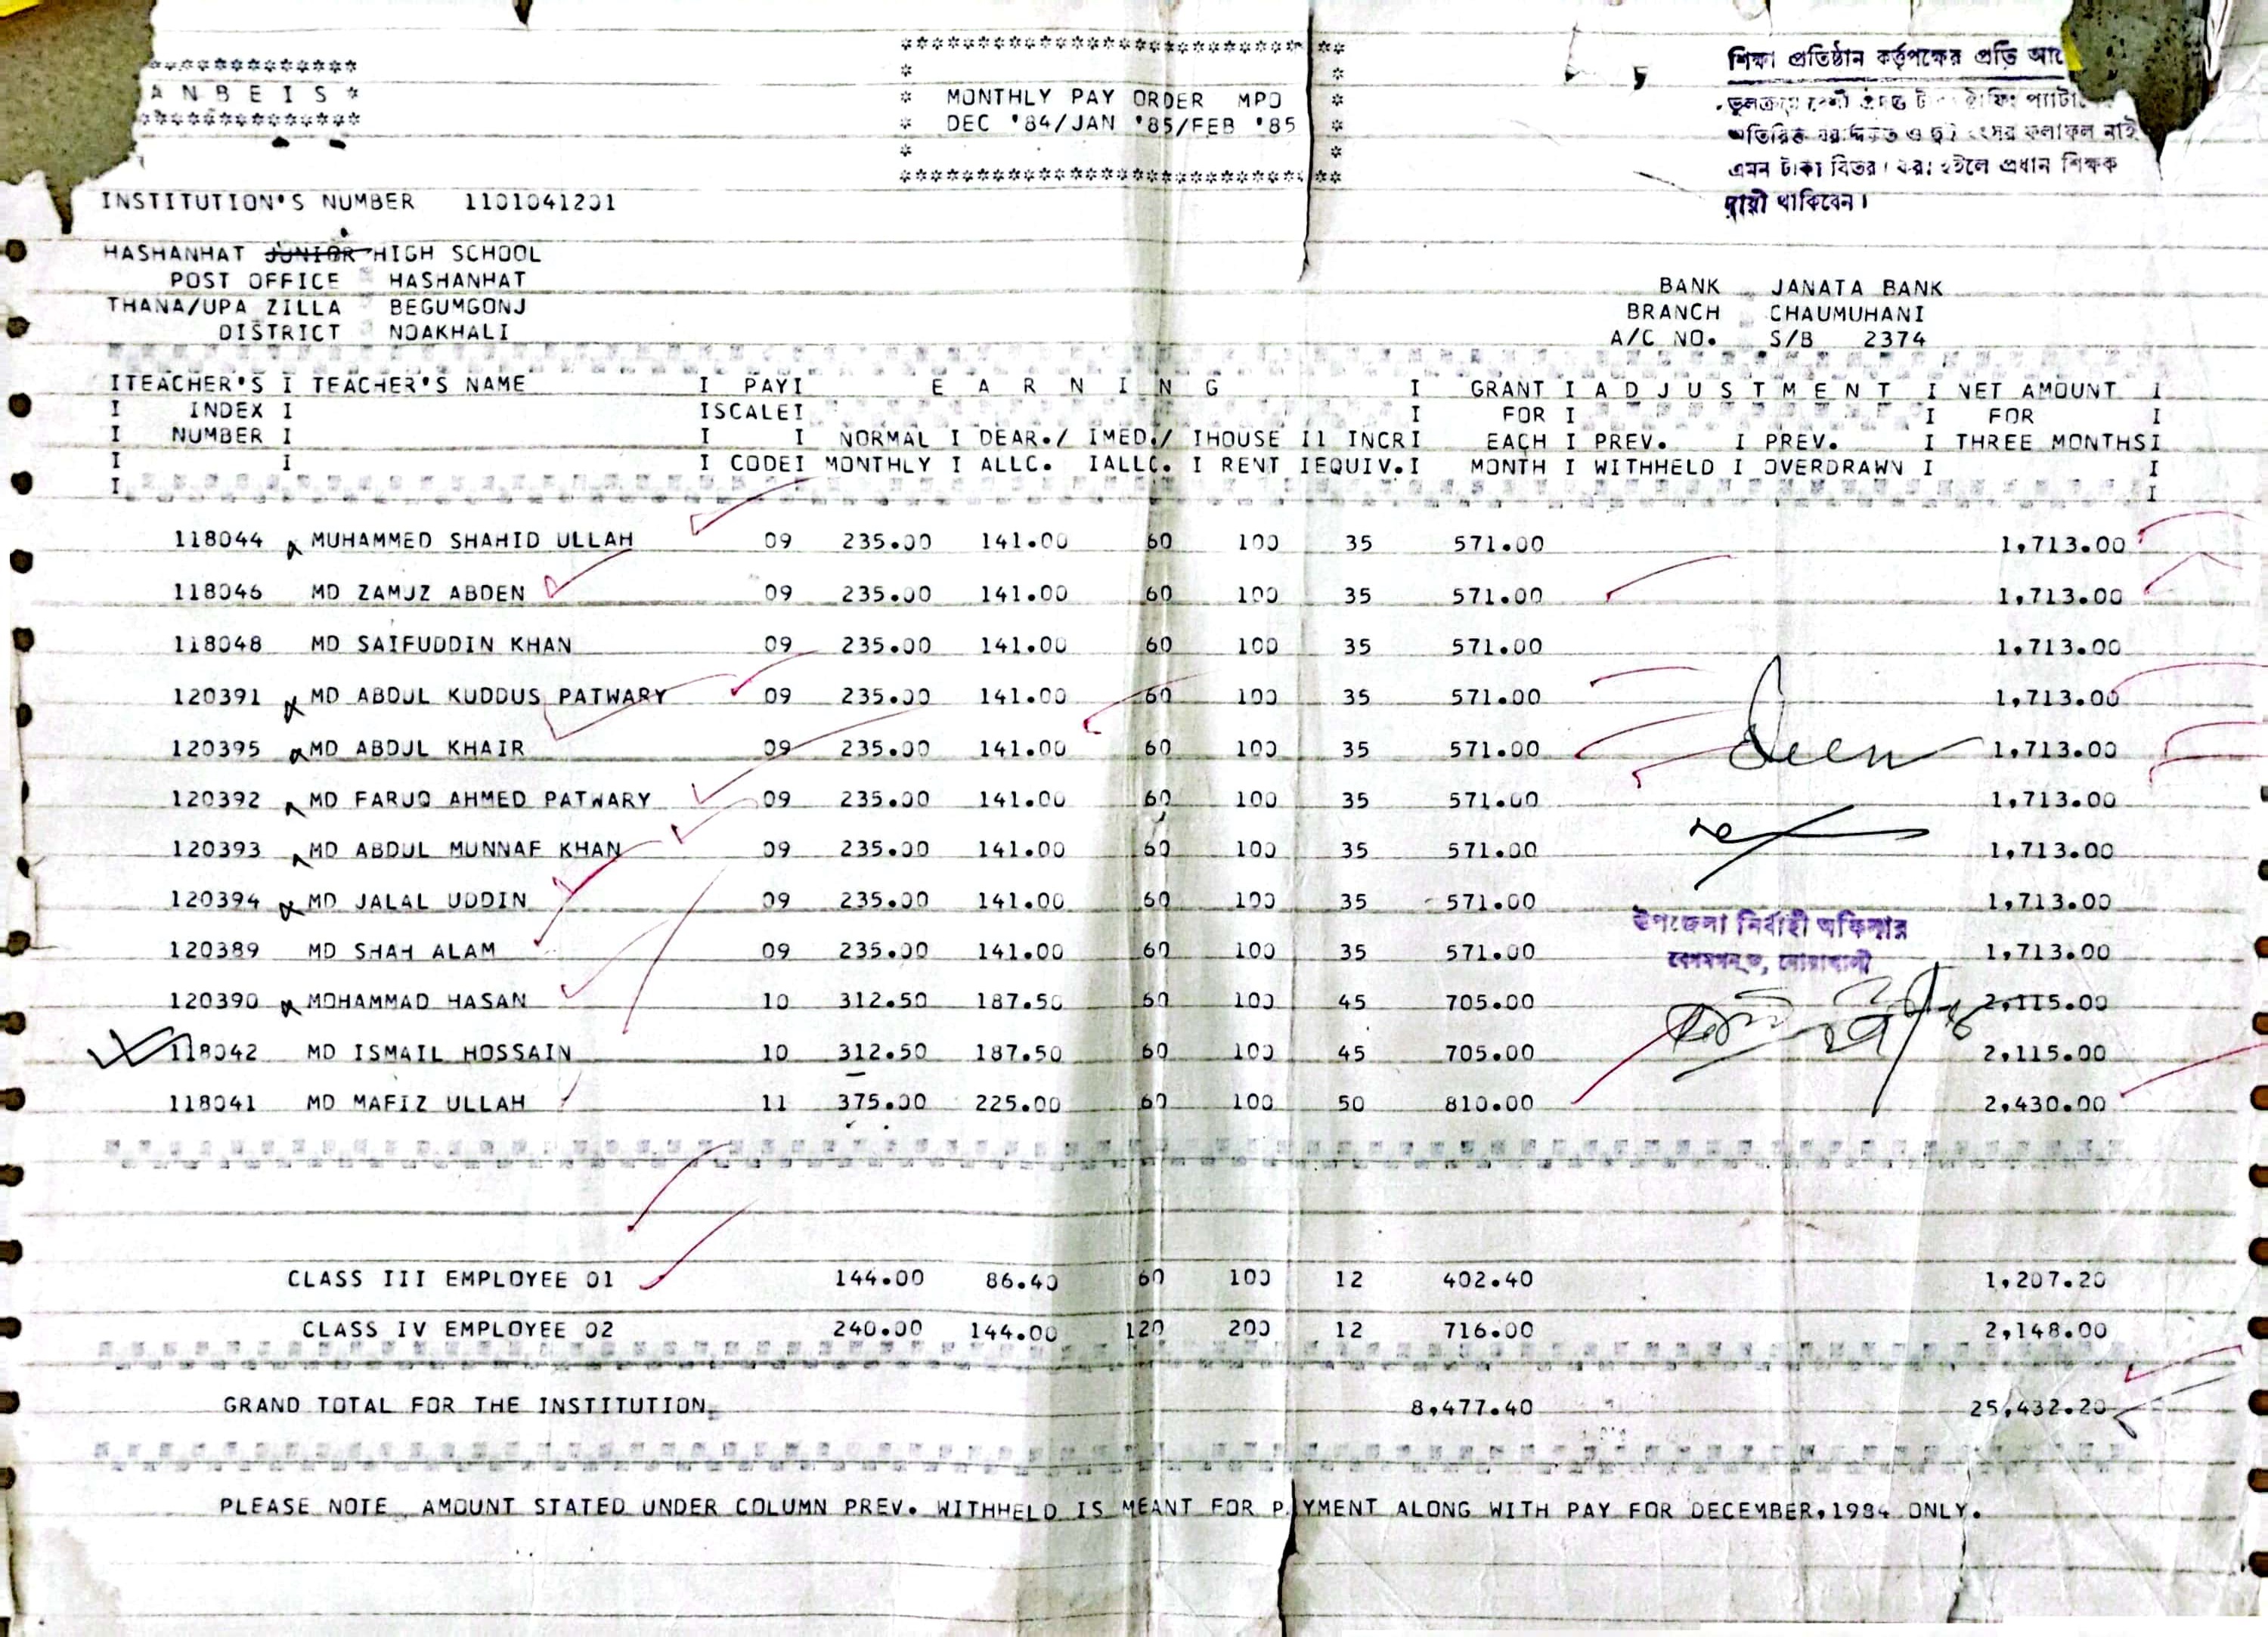 **************
ANBEIS *
**************
*****************************
* MONTHLY PAY ORDER MPO *
* DEC '84/JAN '85/FEB '85 *
*****************************
শিক্ষা প্রতিষ্ঠান কর্তৃপক্ষের প্রতি
অতিরিক্ত ও ফলাফল নাই
এমন টাকা হইলে প্রধান শিক্ষক
দায়ী থাকিবেন।
INSTITUTION'S NUMBER 1101041201
HASHANHAT JUNIOR HIGH SCHOOL
POST OFFICE HASHANHAT
THANA/UPA ZILLA BEGUMGONJ
DISTRICT NOAKHALI
BANK JANATA BANK
BRANCH CHAUMUHANI
A/C NO. S/B 2374
ITEACHER'S I TEACHER'S NAME I PAYI E A R N I N G I GRANT I A D J U S T M E N T I NET AMOUNT I
I INDEX I ISCALEI I FOR I I FOR I
I NUMBER I I I NORMAL I DEAR./ IMED./ IHOUSE I1 INCRI EACH I PREV. I PREV. I THREE MONTHSI
I I I CODEI MONTHLY I ALLC. IALLC. I RENT IEQUIV.I MONTH I WITHHELD I OVERDRAWN I I
118044 MUHAMMED SHAHID ULLAH 09 235.00 141.00 60 100 35 571.00 1,713.00
118046 MD ZAMUZ ABDEN 09 235.00 141.00 60 100 35 571.00 1,713.00
118048 MD SAIFUDDIN KHAN 09 235.00 141.00 60 100 35 571.00 1,713.00
120391 MD ABDUL KUDDUS PATWARY 09 235.00 141.00 60 100 35 571.00 1,713.00
120395 MD ABDUL KHAIR 09 235.00 141.00 60 100 35 571.00 1,713.00
120392 MD FARUQ AHMED PATWARY 09 235.00 141.00 60 100 35 571.00 1,713.00
120393 MD ABDUL MUNNAF KHAN 09 235.00 141.00 60 100 35 571.00 1,713.00
120394 MD JALAL UDDIN 09 235.00 141.00 60 100 35 571.00 1,713.00
উপজেলা নির্বাহী অফিসার
120389 MD SHAH ALAM 09 235.00 141.00 60 100 35 571.00 1,713.00
বেগমগঞ্জ, নোয়াখালী
120390 MOHAMMAD HASAN 10 312.50 187.50 60 100 45 705.00 2,115.00
118042 MD ISMAIL HOSSAIN 10 312.50 187.50 60 100 45 705.00 2,115.00
118041 MD MAFIZ ULLAH 11 375.00 225.00 60 100 50 810.00 2,430.00
CLASS III EMPLOYEE 01 144.00 86.40 60 100 12 402.40 1,207.20
CLASS IV EMPLOYEE 02 240.00 144.00 120 200 12 716.00 2,148.00
GRAND TOTAL FOR THE INSTITUTION 8,477.40 25,432.20
PLEASE NOTE AMOUNT STATED UNDER COLUMN PREV. WITHHELD IS MEANT FOR PAYMENT ALONG WITH PAY FOR DECEMBER,1984 ONLY.